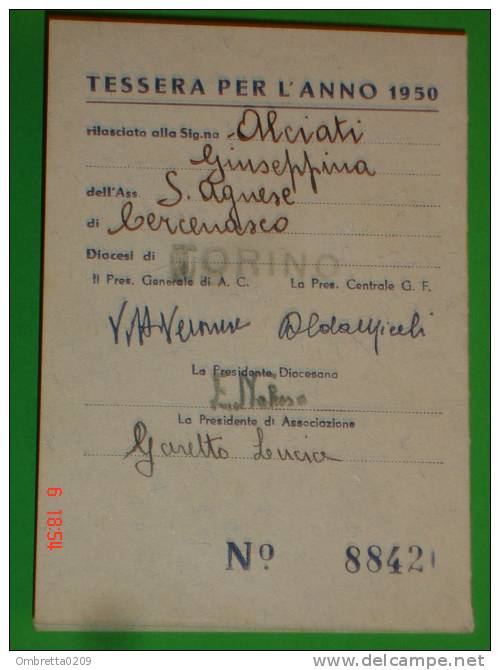 TESSERA PER L'ANNO 1950
rilasciata alla Sig.na Alciati
Giuseppina
dell'Ass. S. Agnese
di Cercenasco
Diocesi di TORINO
Il Pres. Generale di A. C. La Pres. Centrale G. F.
V. Veronese Alda Miceli
La Presidente Diocesana
La Presidente di Associazione
Garetto Lucia
Nº 8842
6 18:54
Ombretta0209 www.delcampe.net